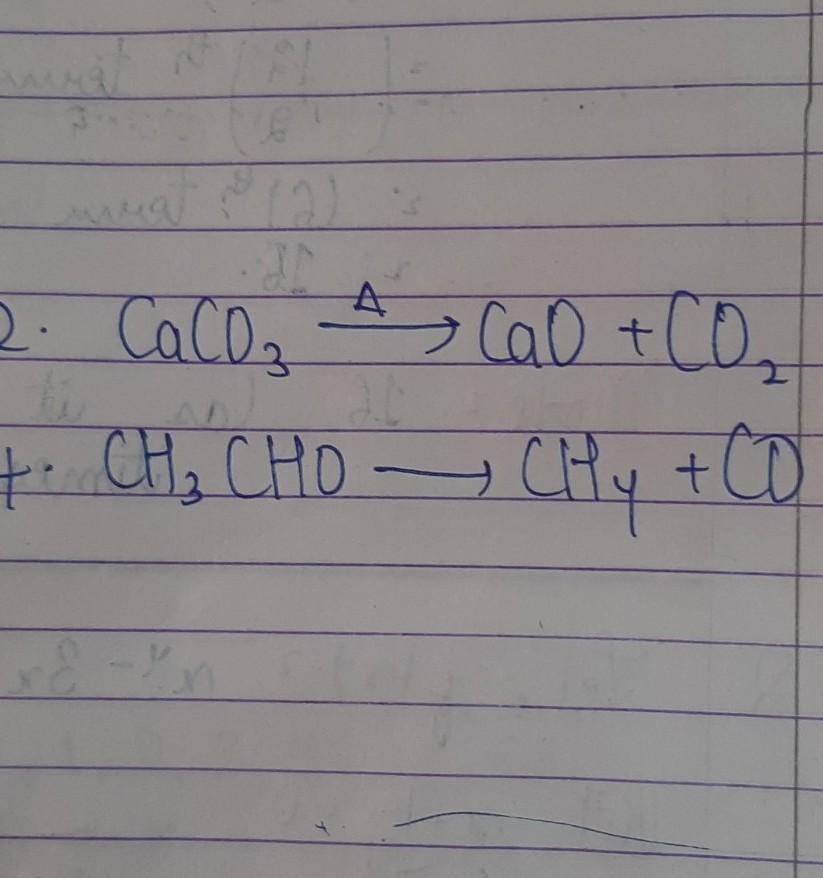 2. CaCO₃ —Δ→ CaO + CO₂
+. CH₃CHO ⟶ CH₄ + CO